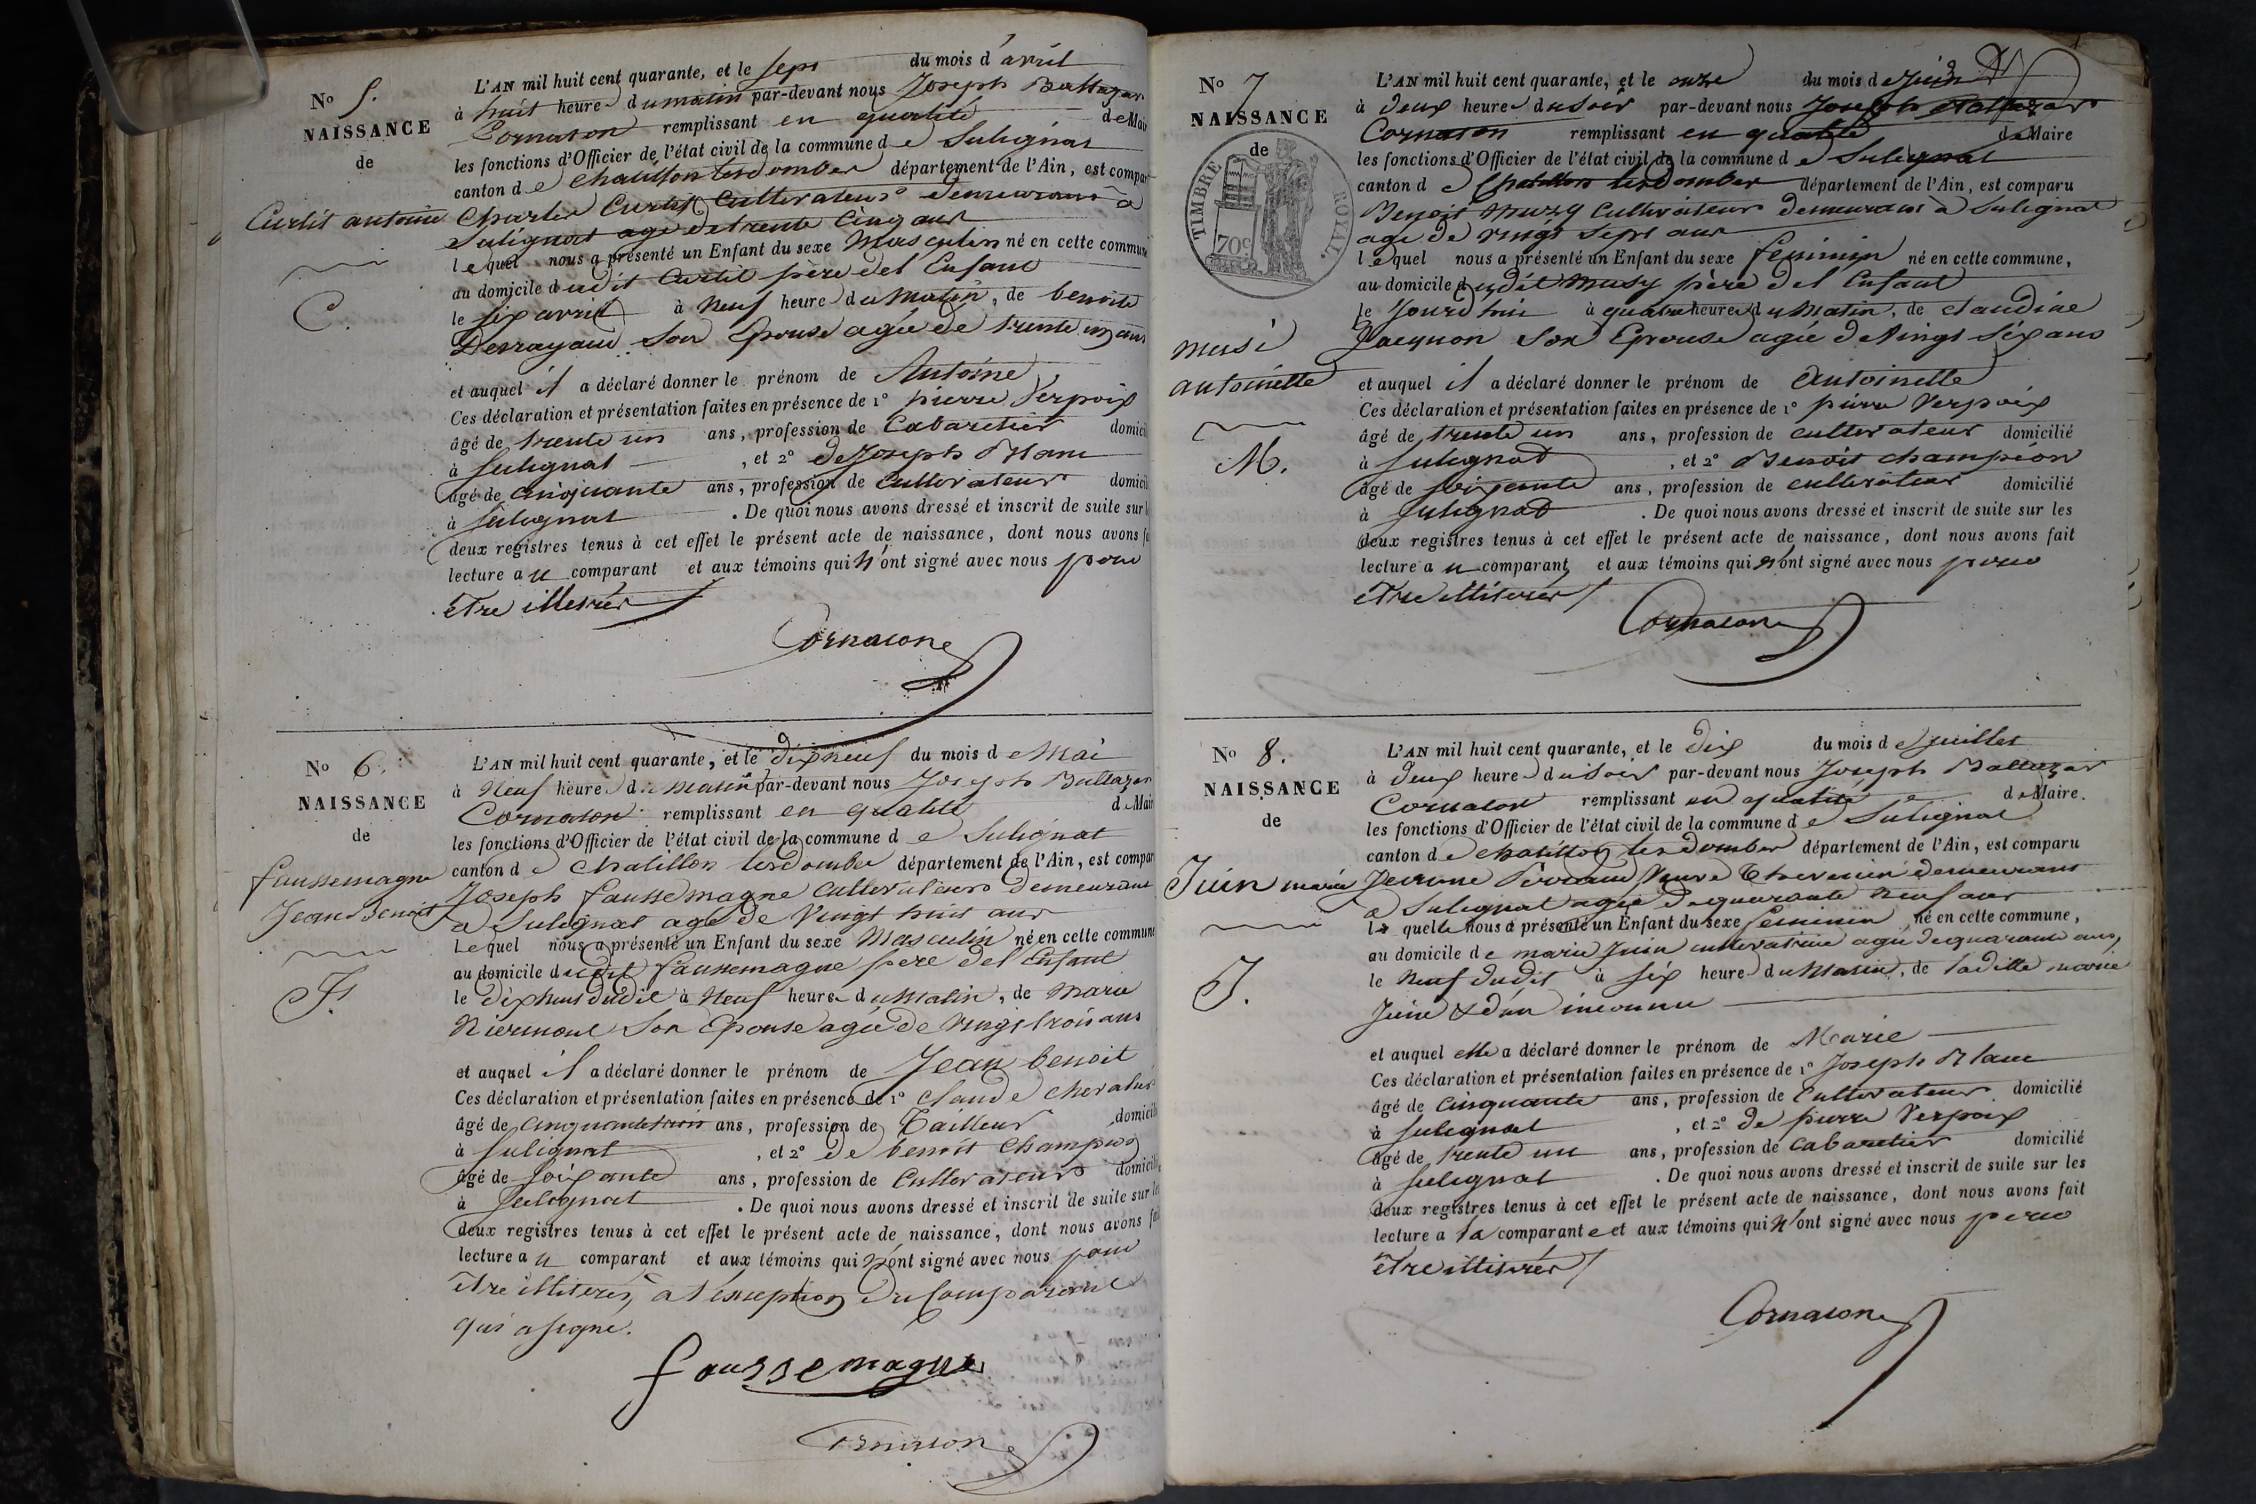 No 5.
NAISSANCE
de
Curtit antoine
C.
L'AN mil huit cent quarante, et le sept du mois d'avril
à huit heure du matin par-devant nous Joseph Baltazar
Cornaton remplissant en qualité de Mair
les fonctions d'Officier de l'état civil de la commune de Sulignat
canton de Chatillon lesdombes département de l'Ain, est compar
Charles Curtit Cultivateur demeurant à
Sulignat agé de trente cinq ans
lequel nous a présenté un Enfant du sexe Masculin né en cette commune
au domicile dudit Curtit père del Enfant
le six avril à Neuf heure du Matin, de benoite
son Epouse agée de trente un ans
et auquel il a déclaré donner le prénom de Antoine
Ces déclaration et présentation faites en présence de 1° pierre Verpoix
âgé de trente un ans, profession de Cabaretier domici
à Sulignat, et 2° de Joseph Blanc
âgé de cinquante ans, profession de Cultivateur domici
à Sulignat. De quoi nous avons dressé et inscrit de suite sur l
deux registres tenus à cet effet le présent acte de naissance, dont nous avons fa
lecture au comparant et aux témoins qui n'ont signé avec nous pour
etre illiterés
Cornaton
No 6.
NAISSANCE
de
faussemagne
Jean Benoit
F.
L'AN mil huit cent quarante, et le dix neuf du mois de Mai
à Neuf heure du matin par-devant nous Joseph Baltazar
Cornaton remplissant en qualité de Mair
les fonctions d'Officier de l'état civil de la commune de Sulignat
canton de Chatillon lesdombes département de l'Ain, est compar
Joseph faussemagne cultivateur demeurant
a Sulignat agé de Vingt huit ans
Lequel nous a présenté un Enfant du sexe Masculin né en cette commune
au domicile dudit faussemagne père del Enfant
le dixhuit dudit à Neuf heure du Matin, de Marie
Niermont Son Epouse agée de vingt trois ans
et auquel il a déclaré donner le prénom de Jean benoit
Ces déclaration et présentation faites en présence de 1° Claude Chevalier
âgé de cinquante trois ans, profession de Tailleur domicili
à Sulignat, et 2° de benoit Champion
âgé de soixante ans, profession de Cultivateur domicili
à Sulignat. De quoi nous avons dressé et inscrit de suite sur le
deux registres tenus à cet effet le présent acte de naissance, dont nous avons fai
lecture au comparant et aux témoins qui n'ont signé avec nous pour
etre illiterés, a l'exception du Comparant
qui a signé.
faussemagne
Cornaton
No 7
NAISSANCE
de
TIMBRE ROYAL.
70c
musi
antoinette
M.
L'AN mil huit cent quarante, et le onze du mois de Juin
à deux heure du soir par-devant nous Joseph Baltazar
Cornaton remplissant en qualité de Maire
les fonctions d'Officier de l'état civil de la commune de Sulignat
canton de Chatillon lesdombes département de l'Ain, est comparu
Benoit Muzy Cultivateur demeurant à Sulignat
agé de vingt sept ans
lequel nous a présenté un Enfant du sexe feminin né en cette commune,
au domicile dudit Musy père del Enfant
le Jourd'hui à quatre heure du Matin, de claudine
Jacquon Son Epouse agée de Vingt six ans
et auquel il a déclaré donner le prénom de Antoinette
Ces déclaration et présentation faites en présence de 1° pierre Verpoix
âgé de trente un ans, profession de cultivateur domicilié
à Sulignat, et 2° Benoit champion
âgé de soixante ans, profession de cultivateur domicilié
à Sulignat. De quoi nous avons dressé et inscrit de suite sur les
deux registres tenus à cet effet le présent acte de naissance, dont nous avons fait
lecture au comparant et aux témoins qui n'ont signé avec nous pour
etre illiterés
Cornaton
No 8.
NAISSANCE
de
Juin marie
J.
L'AN mil huit cent quarante, et le dix du mois de Juillet
à deux heure du soir par-devant nous Joseph Baltazar
Cornaton remplissant en qualité de Maire.
les fonctions d'Officier de l'état civil de la commune de Sulignat
canton de chatillon lesdombes département de l'Ain, est comparu
Perraud Veuve Thevenin demeurant
a Sulignat agée de quarante Neuf ans
laquelle nous a présenté un Enfant du sexe feminin né en cette commune,
au domicile de marie Juin cultivatrice agée de quarante ans,
le Neuf dudit à six heure du Matin, de ladille marie
Juin & d'un inconnu
et auquel elle a déclaré donner le prénom de Marie
Ces déclaration et présentation faites en présence de 1° Joseph Blanc
âgé de cinquante ans, profession de Cultivateur domicilié
à Sulignat, et 2° de pierre Verpoix
âgé de trente un ans, profession de cabaretier domicilié
à Sulignat. De quoi nous avons dressé et inscrit de suite sur les
deux registres tenus à cet effet le présent acte de naissance, dont nous avons fait
lecture a la comparante et aux témoins qui n'ont signé avec nous pour
etre illiterés
Cornaton